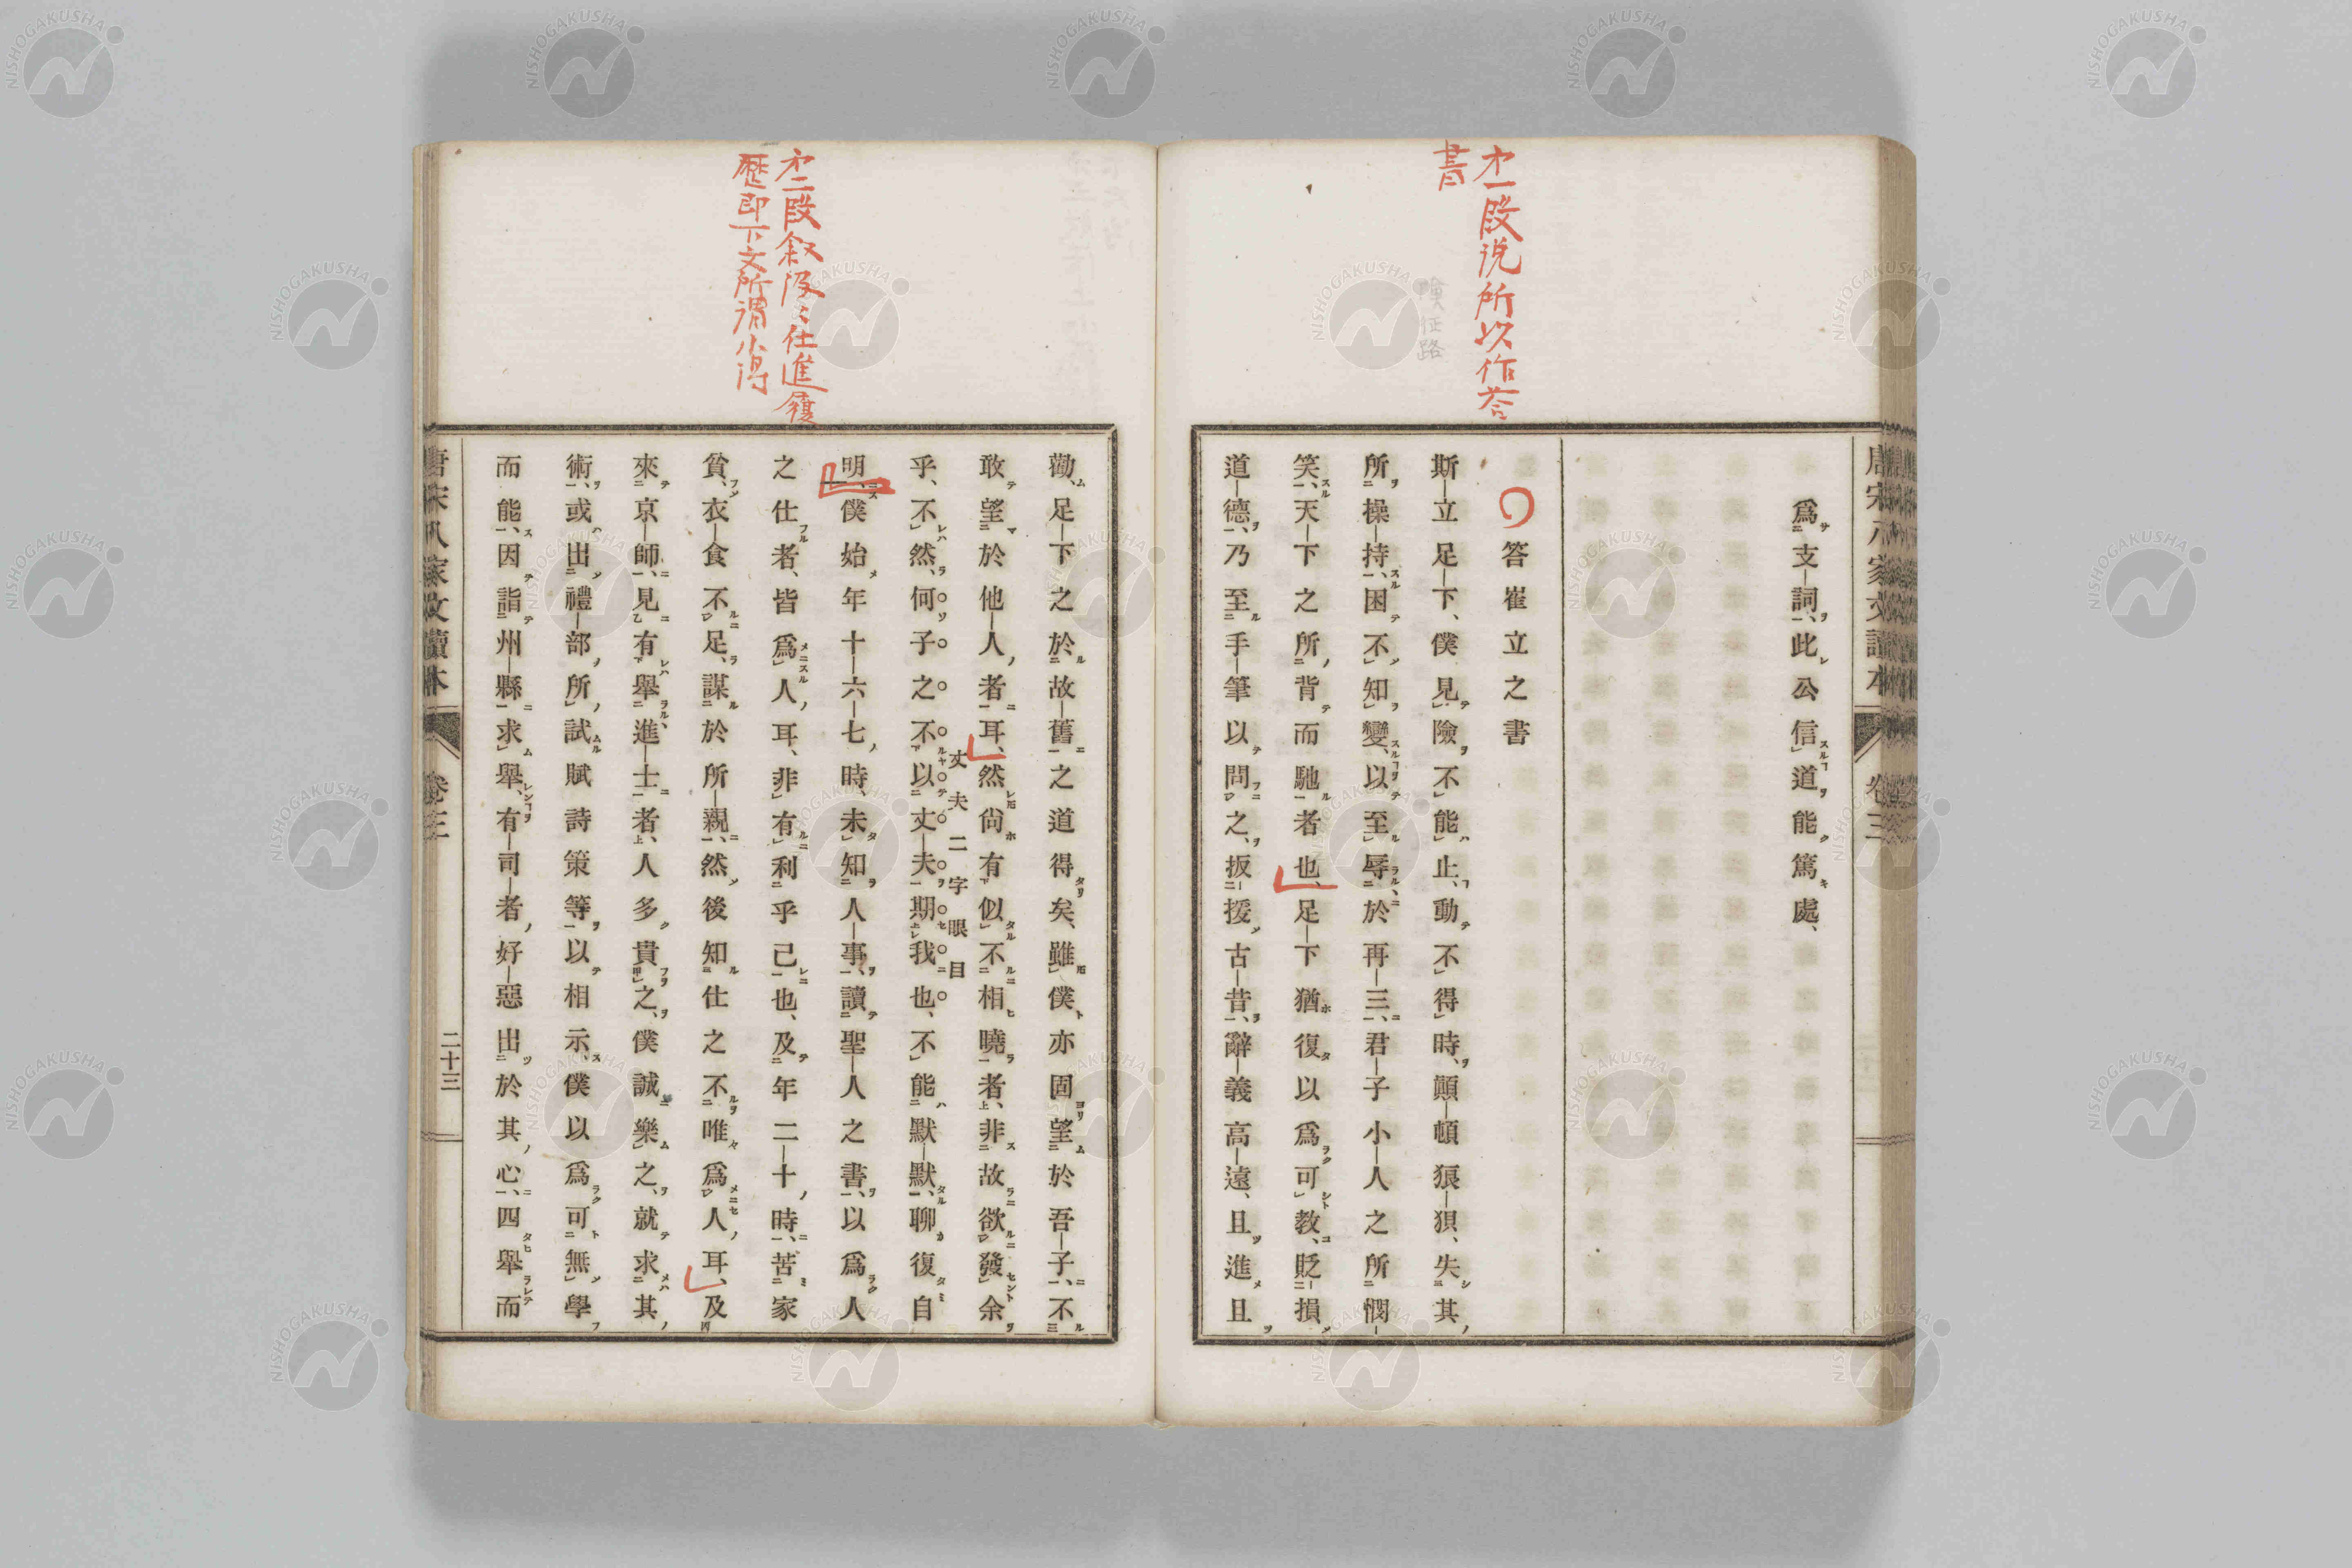 才一段説所以作荅
書
唐宋八家文讀本
卷三
爲支詞、此公信道能篤處、
答崔立之書
斯立足下、僕見險不能止、動不得時、顚頓狼狽、失其
所操持、困不知變、以至辱於再三、君子小人之所憫
笑、天下之所背而馳者也、足下猶復以爲可教、貶損
道德、乃至手筆以問之、扳援古昔、辭義高遠、且進且
才二段叙汲々仕進履
歴即下文所謂小得
勸、足下之於故舊之道得矣、雖僕亦固望於吾子、不
敢望於他人者耳、然尙有似不相曉者、非故欲發余
丈夫二字眼目
乎、不然、何子之不以丈夫期我也、不能默默、聊復自
明、僕始年十六七時、未知人事、讀聖人之書、以爲人
之仕者、皆爲人耳、非有利乎己也、及年二十時、苦家
貧、衣食不足、謀於所親、然後知仕之不唯爲人耳、及
來京師、見有舉進士者、人多貴之、僕誠樂之、就求其
術、或出禮部所試賦詩策等、以相示、僕以爲可無學
而能、因詣州縣求舉、有司者好惡出於其心、四舉而
唐宋八家文讀本
卷三
二十三
NISHOGAKUSHA